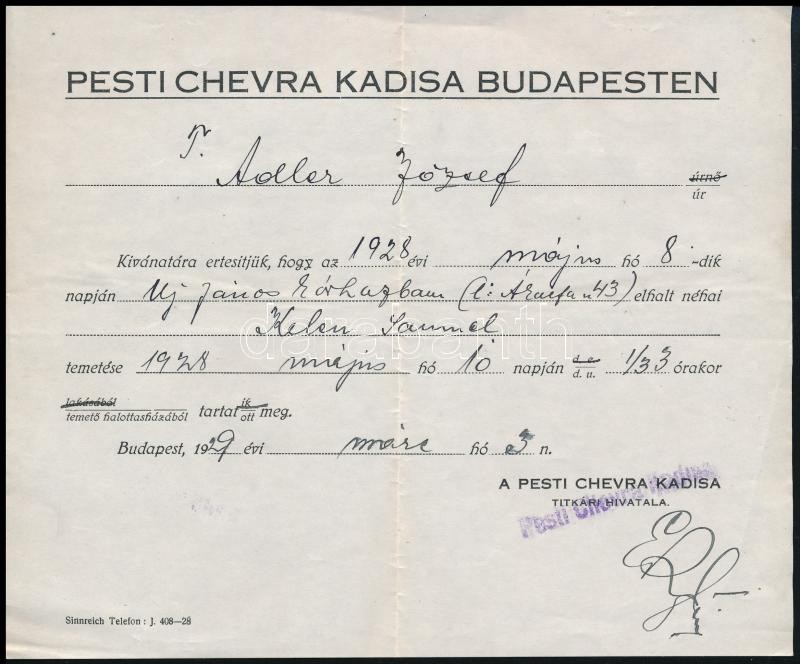 PESTI CHEVRA KADISA BUDAPESTEN
T. Adler József úrnő
úr
Kivánatára értesitjük, hogy az 1928 évi május hó 8 -dik
napján Uj János Kórházban (l: Árnyfa u 43) elhalt néhai
Kelen Samuel
temetése 1928 május hó 10 napján de. d. u. 1/3 3 órakor
lakásából
temető halottasházából tartatik
ott meg.
Budapest, 1929 évi márc hó 3 n.
A PESTI CHEVRA KADISA
TITKÁRI HIVATALA.
Pesti Chevra Kadisa
Sinnreich Telefon : J. 408—28
darabanth